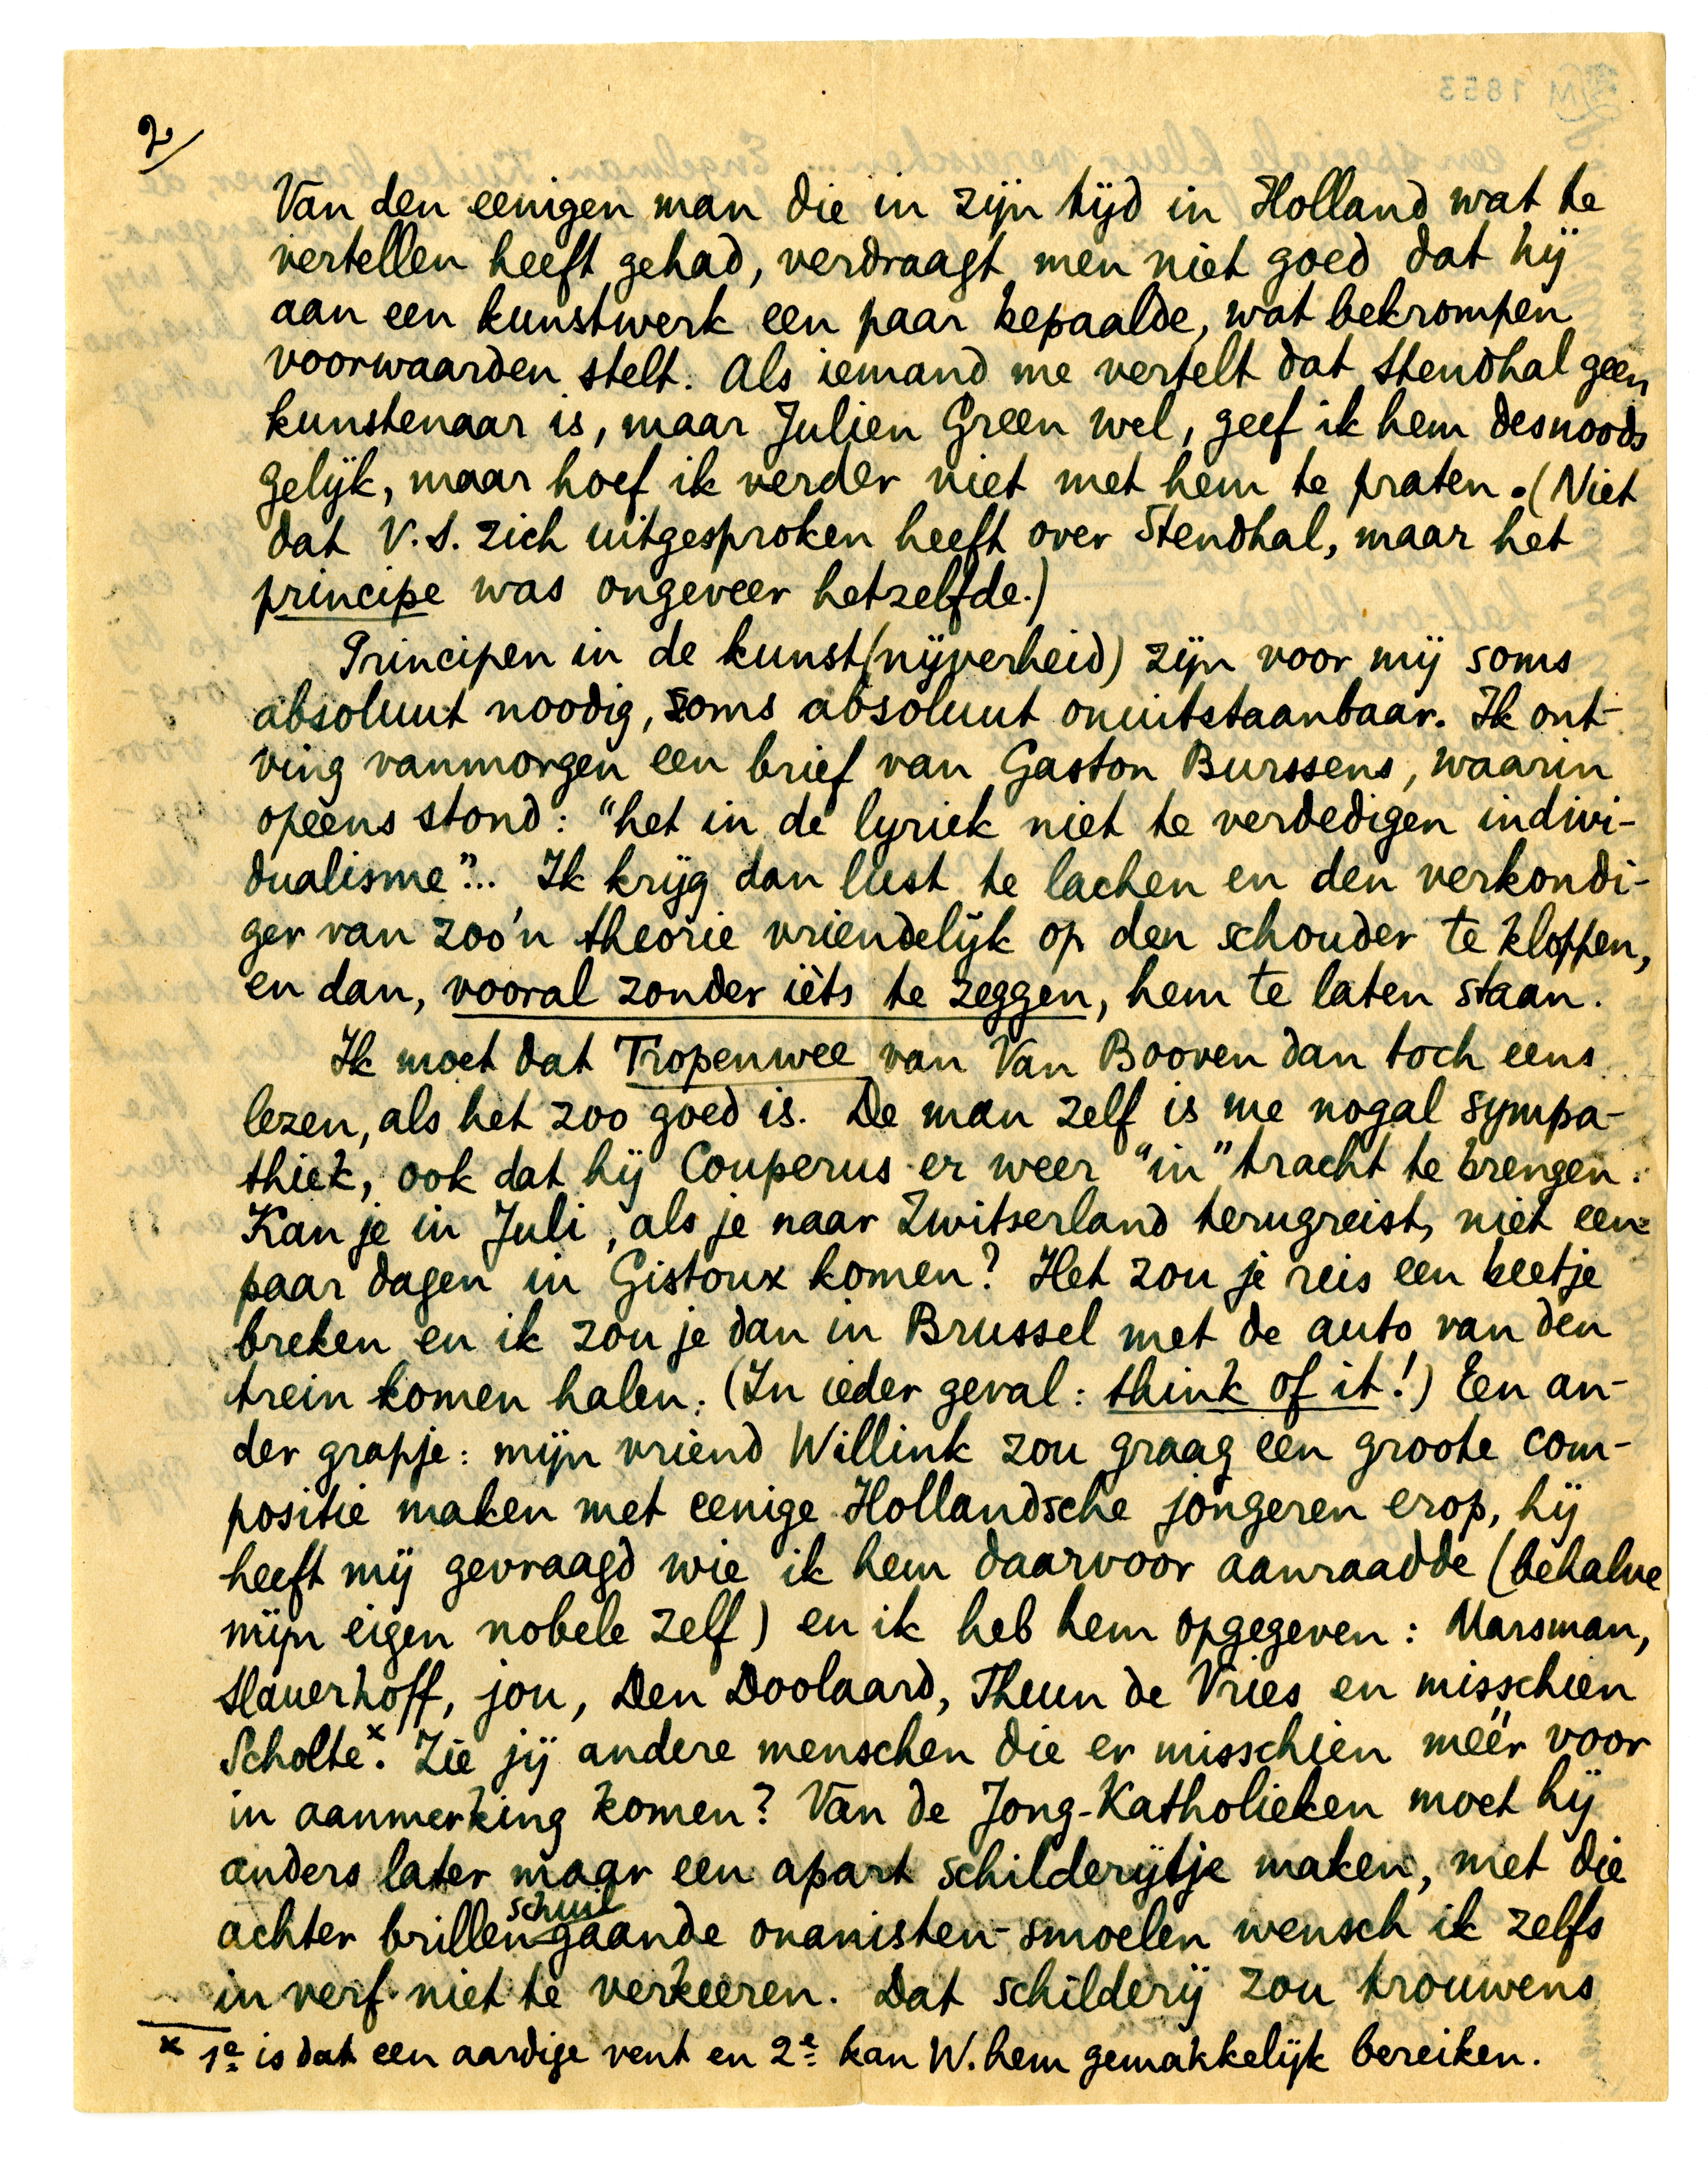 2/
Van den eenigen man die in zijn tijd in Holland wat te
vertellen heeft gehad, verdraagt men niet goed dat hij
aan een kunstwerk een paar bepaalde, wat bekrompen
voorwaarden stelt. Als iemand me vertelt dat Stendhal geen
kunstenaar is, maar Julien Green wel, geef ik hem desnoods
gelijk, maar hoef ik verder niet met hem te praten. (Niet
dat V.S. zich uitgesproken heeft over Stendhal, maar het
principe was ongeveer hetzelfde.)
Principen in de kunst(nijverheid) zijn voor mij soms
absoluut noodig, soms absoluut onuitstaanbaar. Ik ont-
ving vanmorgen een brief van Gaston Burssens, waarin
opeens stond: "het in de lyriek niet te verdedigen indivi-
dualisme"... Ik krijg dan lust te lachen en den verkondi-
ger van zoo'n theorie vriendelijk op den schouder te kloppen,
en dan, vooral zonder ièts te zeggen, hem te laten staan.
Ik moet dat Tropenwee van Van Booven dan toch eens
lezen, als het zoo goed is. De man zelf is me nogal sympa-
thiek, ook dat hij Couperus er weer "in" tracht te brengen.
Kan je in Juli, als je naar Zwitserland terugreist, niet een
paar dagen in Gistoux komen? Het zou je reis een beetje
breken en ik zou je dan in Brussel met de auto van den
trein komen halen. (In ieder geval: think of it!) Een an-
der grapje: mijn vriend Willink zou graag een groote com-
positie maken met eenige Hollandsche jongeren erop, hij
heeft mij gevraagd wie ik hem daarvoor aanraadde (behalve
mijn eigen nobele zelf) en ik heb hem opgegeven: Marsman,
Slauerhoff, jou, Den Doolaard, Theun de Vries en misschien
Scholte.x Zie jij andere menschen die er misschien méér voor
in aanmerking komen? Van de Jong-Katholieken moet hij
anders later maar een apart schilderijtje maken, met die
achter brillen schuilgaande onanisten-smoelen wensch ik zelfs
in verf niet te verkeeren. Dat schilderij zou trouwens
x 1e is dat een aardige vent en 2e kan W. hem gemakkelijk bereiken.
M 1853